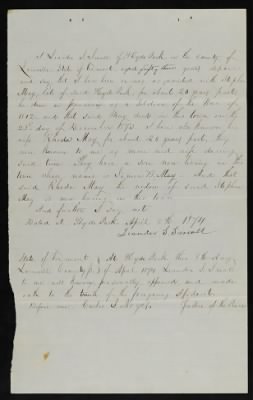 I Leander S. Small of Hyde Park in the county of
Lamoille State of Vermont aged fifty three years depose
and say that I have been in acquainted with Stephen
May, late of said Hyde Park, for about 20 years past
he drew a pension as a soldier of the War of
1812. and that said May died in this town on the
23d day of December 1873. I have also known his
wife Rhoda May for about 20 years past, the
were known to me as man and wife during
said time. They have a son now living in the
town whose name is May. And that
said Rhoda May the widow of said Stephen
May is now living in this town
And further I say not
Dated at Hyde Park April 8th 1874
Leander S. Small
State of Vermont At Hyde Park this 8th day
Lamoille County of April 1874 Leander S. Small
to me well known, personally appeared and made
oath to the truth of the foregoing affidavit
Before me Justice of the Peace